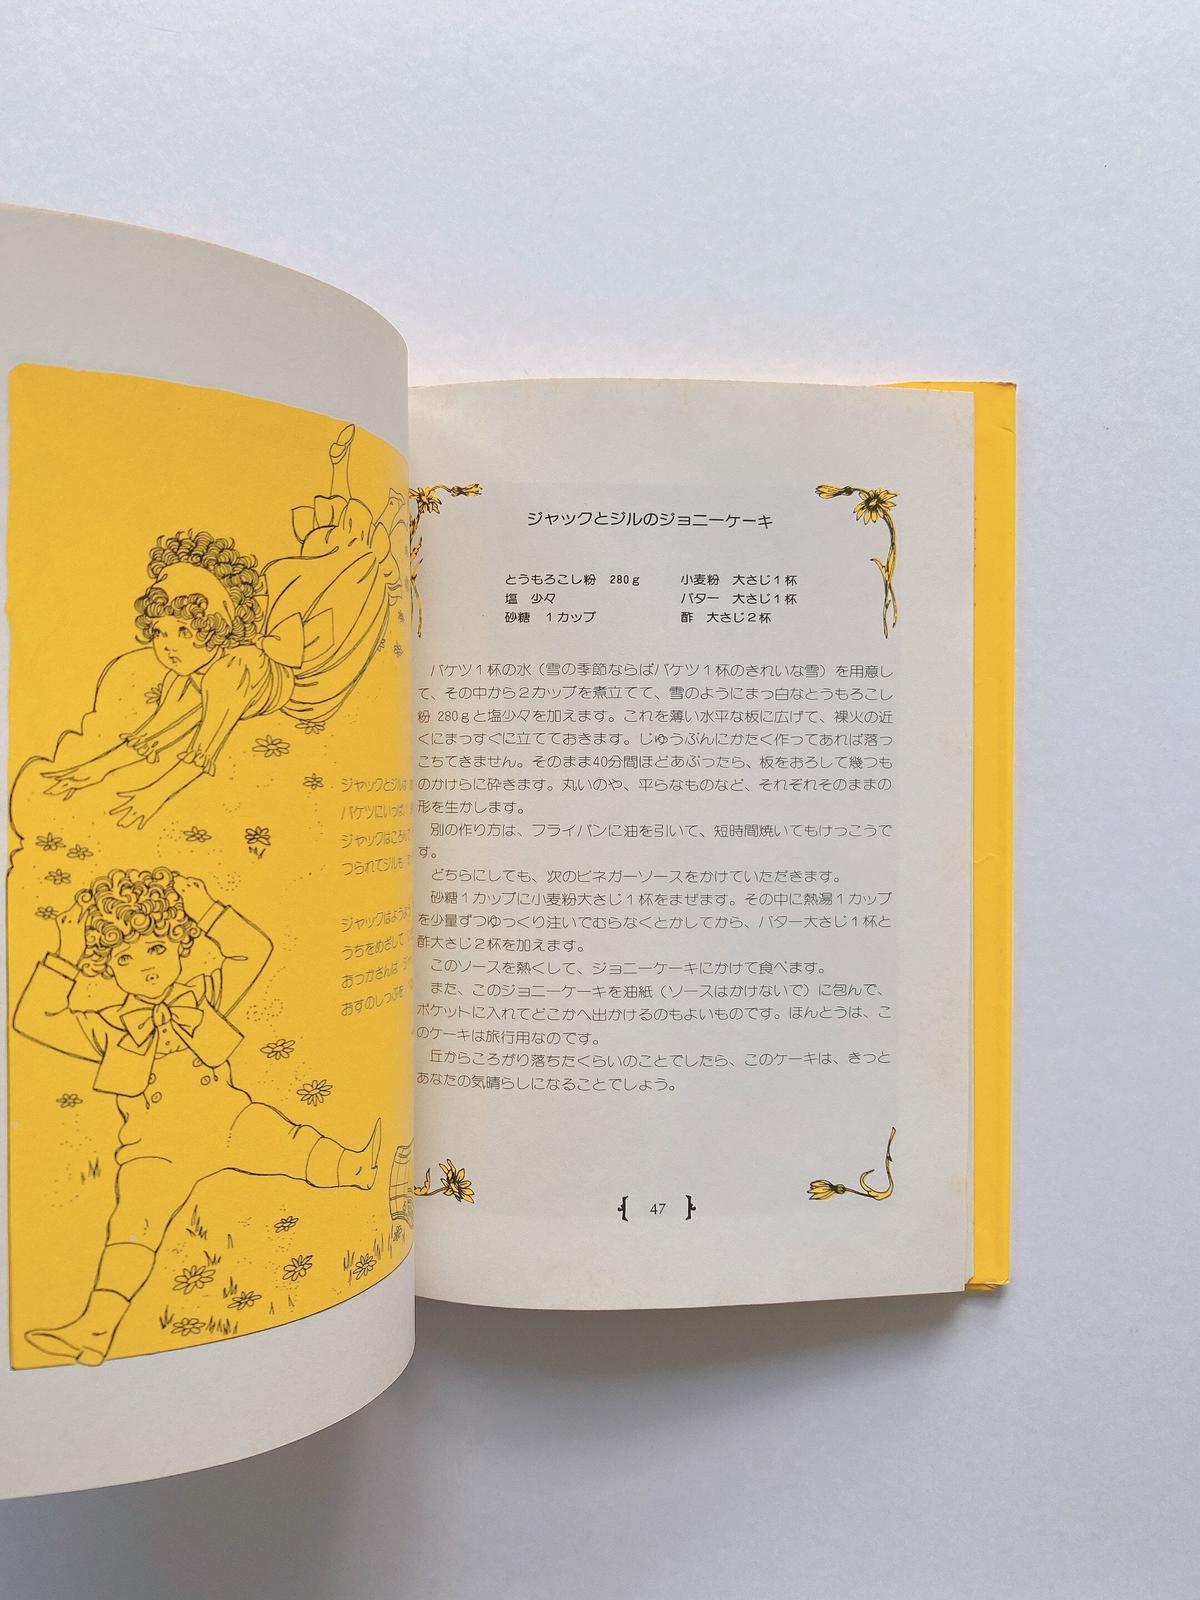 ジャックとジルは
バケツにいっぱい
ジャックはころんで
つられてジルも
ジャックはようよう
うちをめざして
おっかさんは
おすのしっぷを
ジャックとジルのジョニーケーキ
とうもろこし粉 280g 小麦粉 大さじ1杯
塩 少々 バター 大さじ1杯
砂糖 1カップ 酢 大さじ2杯
バケツ1杯の水（雪の季節ならばバケツ1杯のきれいな雪）を用意し
て、その中から2カップを煮立てて、雪のようにまっ白なとうもろこし
粉 280gと塩少々を加えます。これを薄い水平な板に広げて、裸火の近
くにまっすぐに立てておきます。じゅうぶんにかたく作ってあれば落っ
こちてきません。そのまま40分間ほどあぶったら、板をおろして幾つも
のかけらに砕きます。丸いのや、平らなものなど、それぞれそのままの
形を生かします。
別の作り方は、フライパンに油を引いて、短時間焼いてもけっこうで
す。
どちらにしても、次のビネガーソースをかけていただきます。
砂糖1カップに小麦粉大さじ1杯をまぜます。その中に熱湯1カップ
を少量ずつゆっくり注いでむらなくとかしてから、バター大さじ1杯と
酢大さじ2杯を加えます。
このソースを熱くして、ジョニーケーキにかけて食べます。
また、このジョニーケーキを油紙（ソースはかけないで）に包んで、
ポケットに入れてどこかへ出かけるのもよいものです。ほんとうは、こ
のケーキは旅行用なのです。
丘からころがり落ちたくらいのことでしたら、このケーキは、きっと
あなたの気晴らしになることでしょう。
47